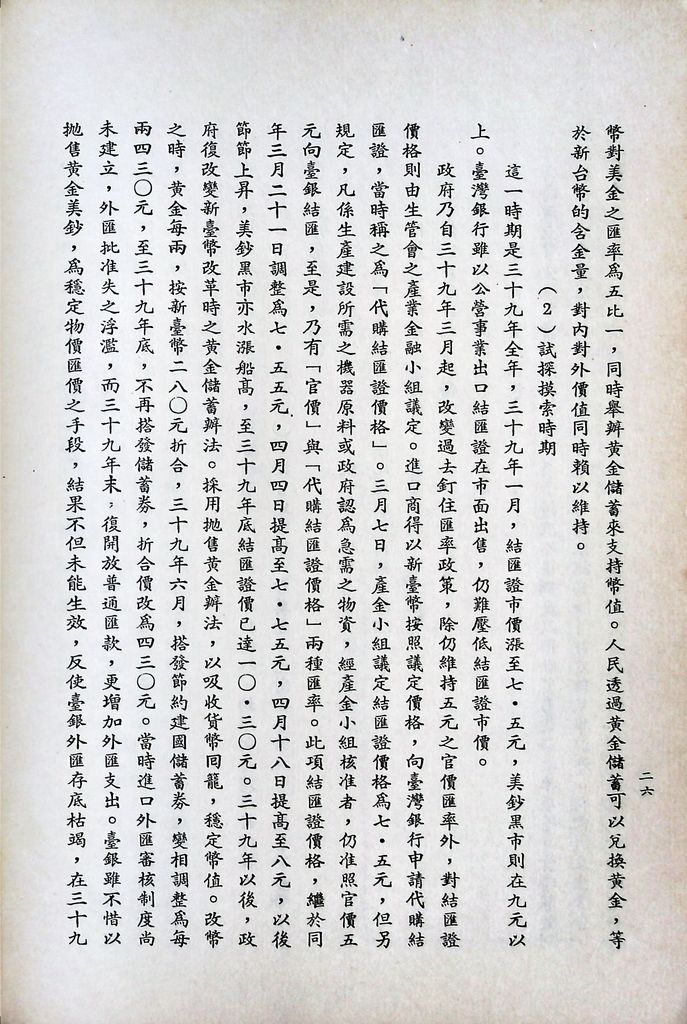 幣對美金之匯率為五比一，同時舉辦黃金儲蓄來支持幣值。人民透過黃金儲蓄可以兌換黃金，等
於新台幣的含金量，對內對外價值同時賴以維持。
（２）試探摸索時期
這一時期是三十九年全年，三十九年一月，結匯證市價漲至七・五元，美鈔黑市則在九元以
上。臺灣銀行雖以公營事業出口結匯證在市面出售，仍難壓低結匯證市價。
政府乃自三十九年三月起，改變過去釘住匯率政策，除仍維持五元之官價匯率外，對結匯證
價格則由生管會之產業金融小組議定。進口商得以新臺幣按照議定價格，向臺灣銀行申請代購結
匯證，當時稱之為「代購結匯證價格」。三月七日，產金小組議定結匯證價格為七・五元，但另
規定，凡係生產建設所需之機器原料或政府認為急需之物資，經產金小組核准者，仍准照官價五
元向臺銀結匯，至是，乃有「官價」與「代購結匯證價格」兩種匯率。此項結匯證價格，繼於同
年三月二十一日調整為七・五五元，四月四日提高至七・七五元，四月十八日提高至八元，以後
節節上昇，美鈔黑市亦水漲船高，至三十九年底結匯證價已達一〇・三〇元。三十九年以後，政
府復改變新臺幣改革時之黃金儲蓄辦法。採用拋售黃金辦法，以吸收貨幣回籠，穩定幣值。改幣
之時，黃金每兩，按新臺幣二八〇元折合，三十九年六月，搭發節約建國儲蓄券，變相調整為每
兩四三〇元，至三十九年底，不再搭發儲蓄券，折合價改為四三〇元。當時進口外匯審核制度尚
未建立，外匯批准失之浮濫，而三十九年末，復開放普通匯款，更增加外匯支出。臺銀雖不惜以
拋售黃金美鈔，為穩定物價匯價之手段，結果不但未能生效，反使臺銀外匯存底枯竭，在三十九
二六